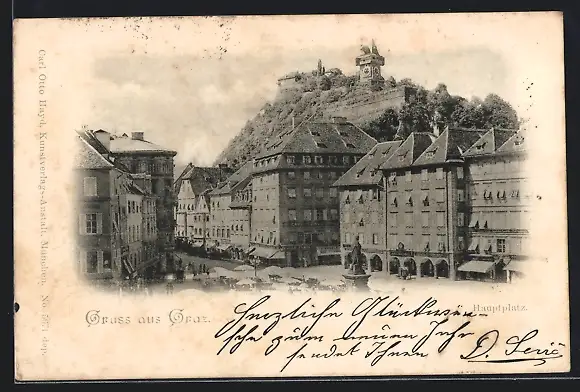 Carl Otto Hayd, Kunstverlags-Anstalt, München.
Gruss aus Graz.
Hauptplatz.
Herzliche Glückwün-
sche zum neuen Jahr
sendet Ihnen